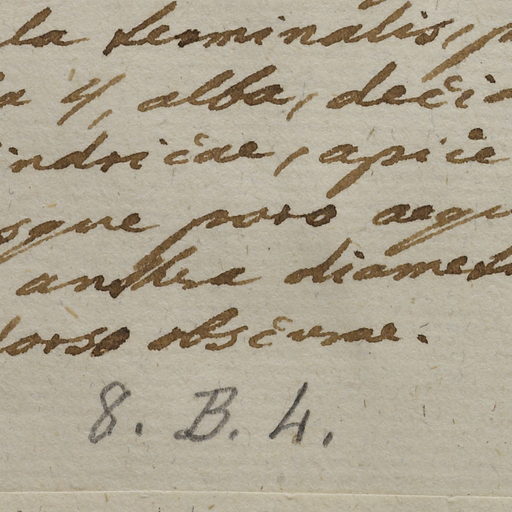 la terminalis, p
a 4, alba, decid
indricae, apice
sque poro aequ
anthra diamet
dorso obscurae.
8. B. 4.